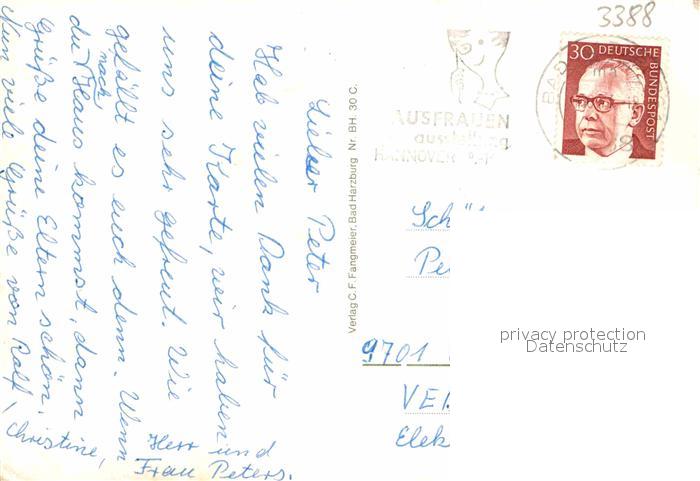 3388
30 DEUTSCHE
BUNDESPOST
BAD
AUSFRAUEN
ausstellung
HANNOVER
Lieber Peter
Hab vielen Dank für
deine Karte, wir haben
uns sehr gefreut. Wie
gefällt es euch denn. Wenn
du nach Haus kommst, dann
Grüße deine Eltern schön.
Nun viele Grüße von Ralf,
Christine,
Herr und
Frau Peters.
Verlag C. F. Fangmeier, Bad Harzburg Nr. BH. 30 C.
Sch
Pe
9701
VE
Elek
privacy protection
Datenschutz